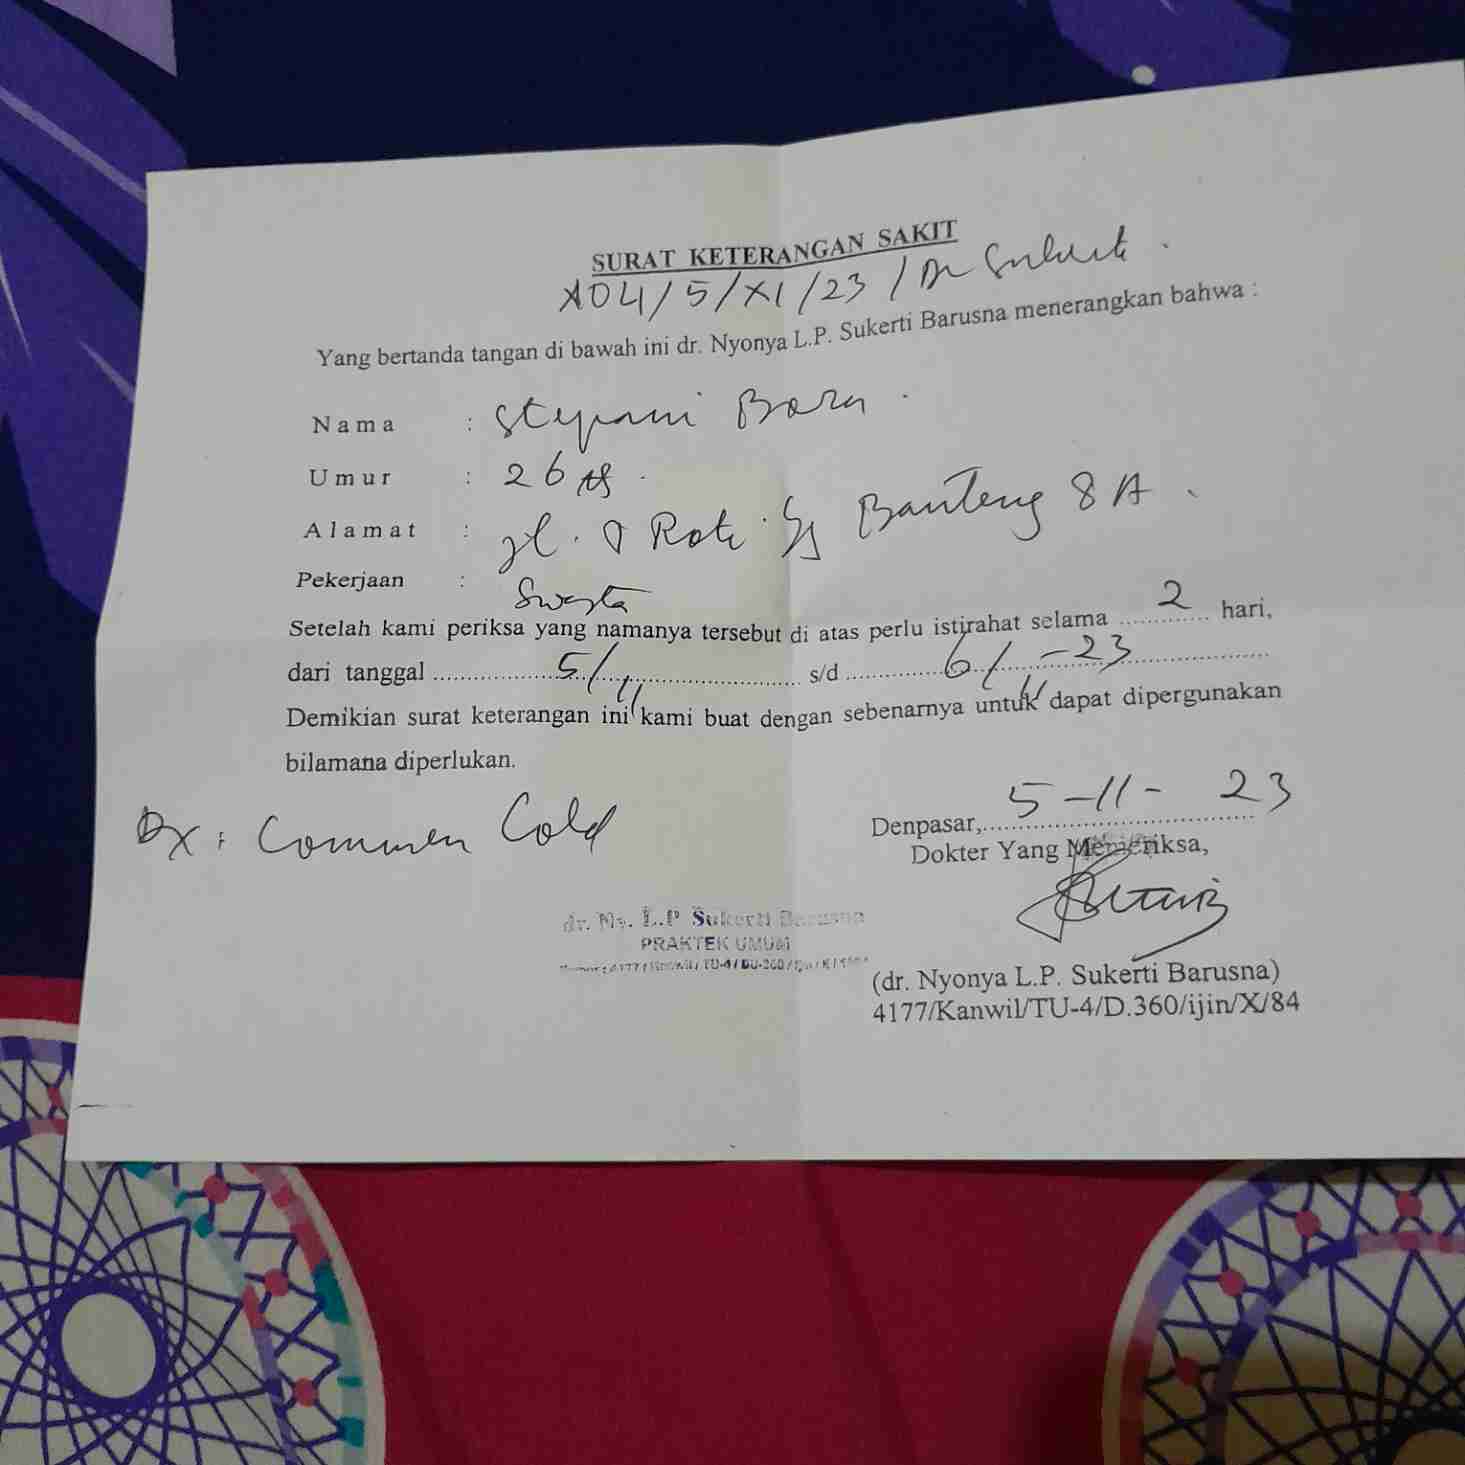 SURAT KETERANGAN SAKIT
104/5/XI/23 / Dr Sukerti
Yang bertanda tangan di bawah ini dr. Nyonya L.P. Sukerti Barusna menerangkan bahwa :
Nama : Stepani Bora
Umur : 26 th
Alamat : Jl. P Roti Gg Banteng 8 A
Pekerjaan : Swasta
Setelah kami periksa yang namanya tersebut di atas perlu istirahat selama 2 hari,
dari tanggal 5/11 s/d 6/11-23
Demikian surat keterangan ini kami buat dengan sebenarnya untuk dapat dipergunakan
bilamana diperlukan.
Dx : Common Cold
Denpasar, 5-11-23
Dokter Yang Memeriksa,
dr. Ny. L.P Sukerti Barusna
PRAKTEK UMUM
(dr. Nyonya L.P. Sukerti Barusna)
4177/Kanwil/TU-4/D.360/ijin/X/84